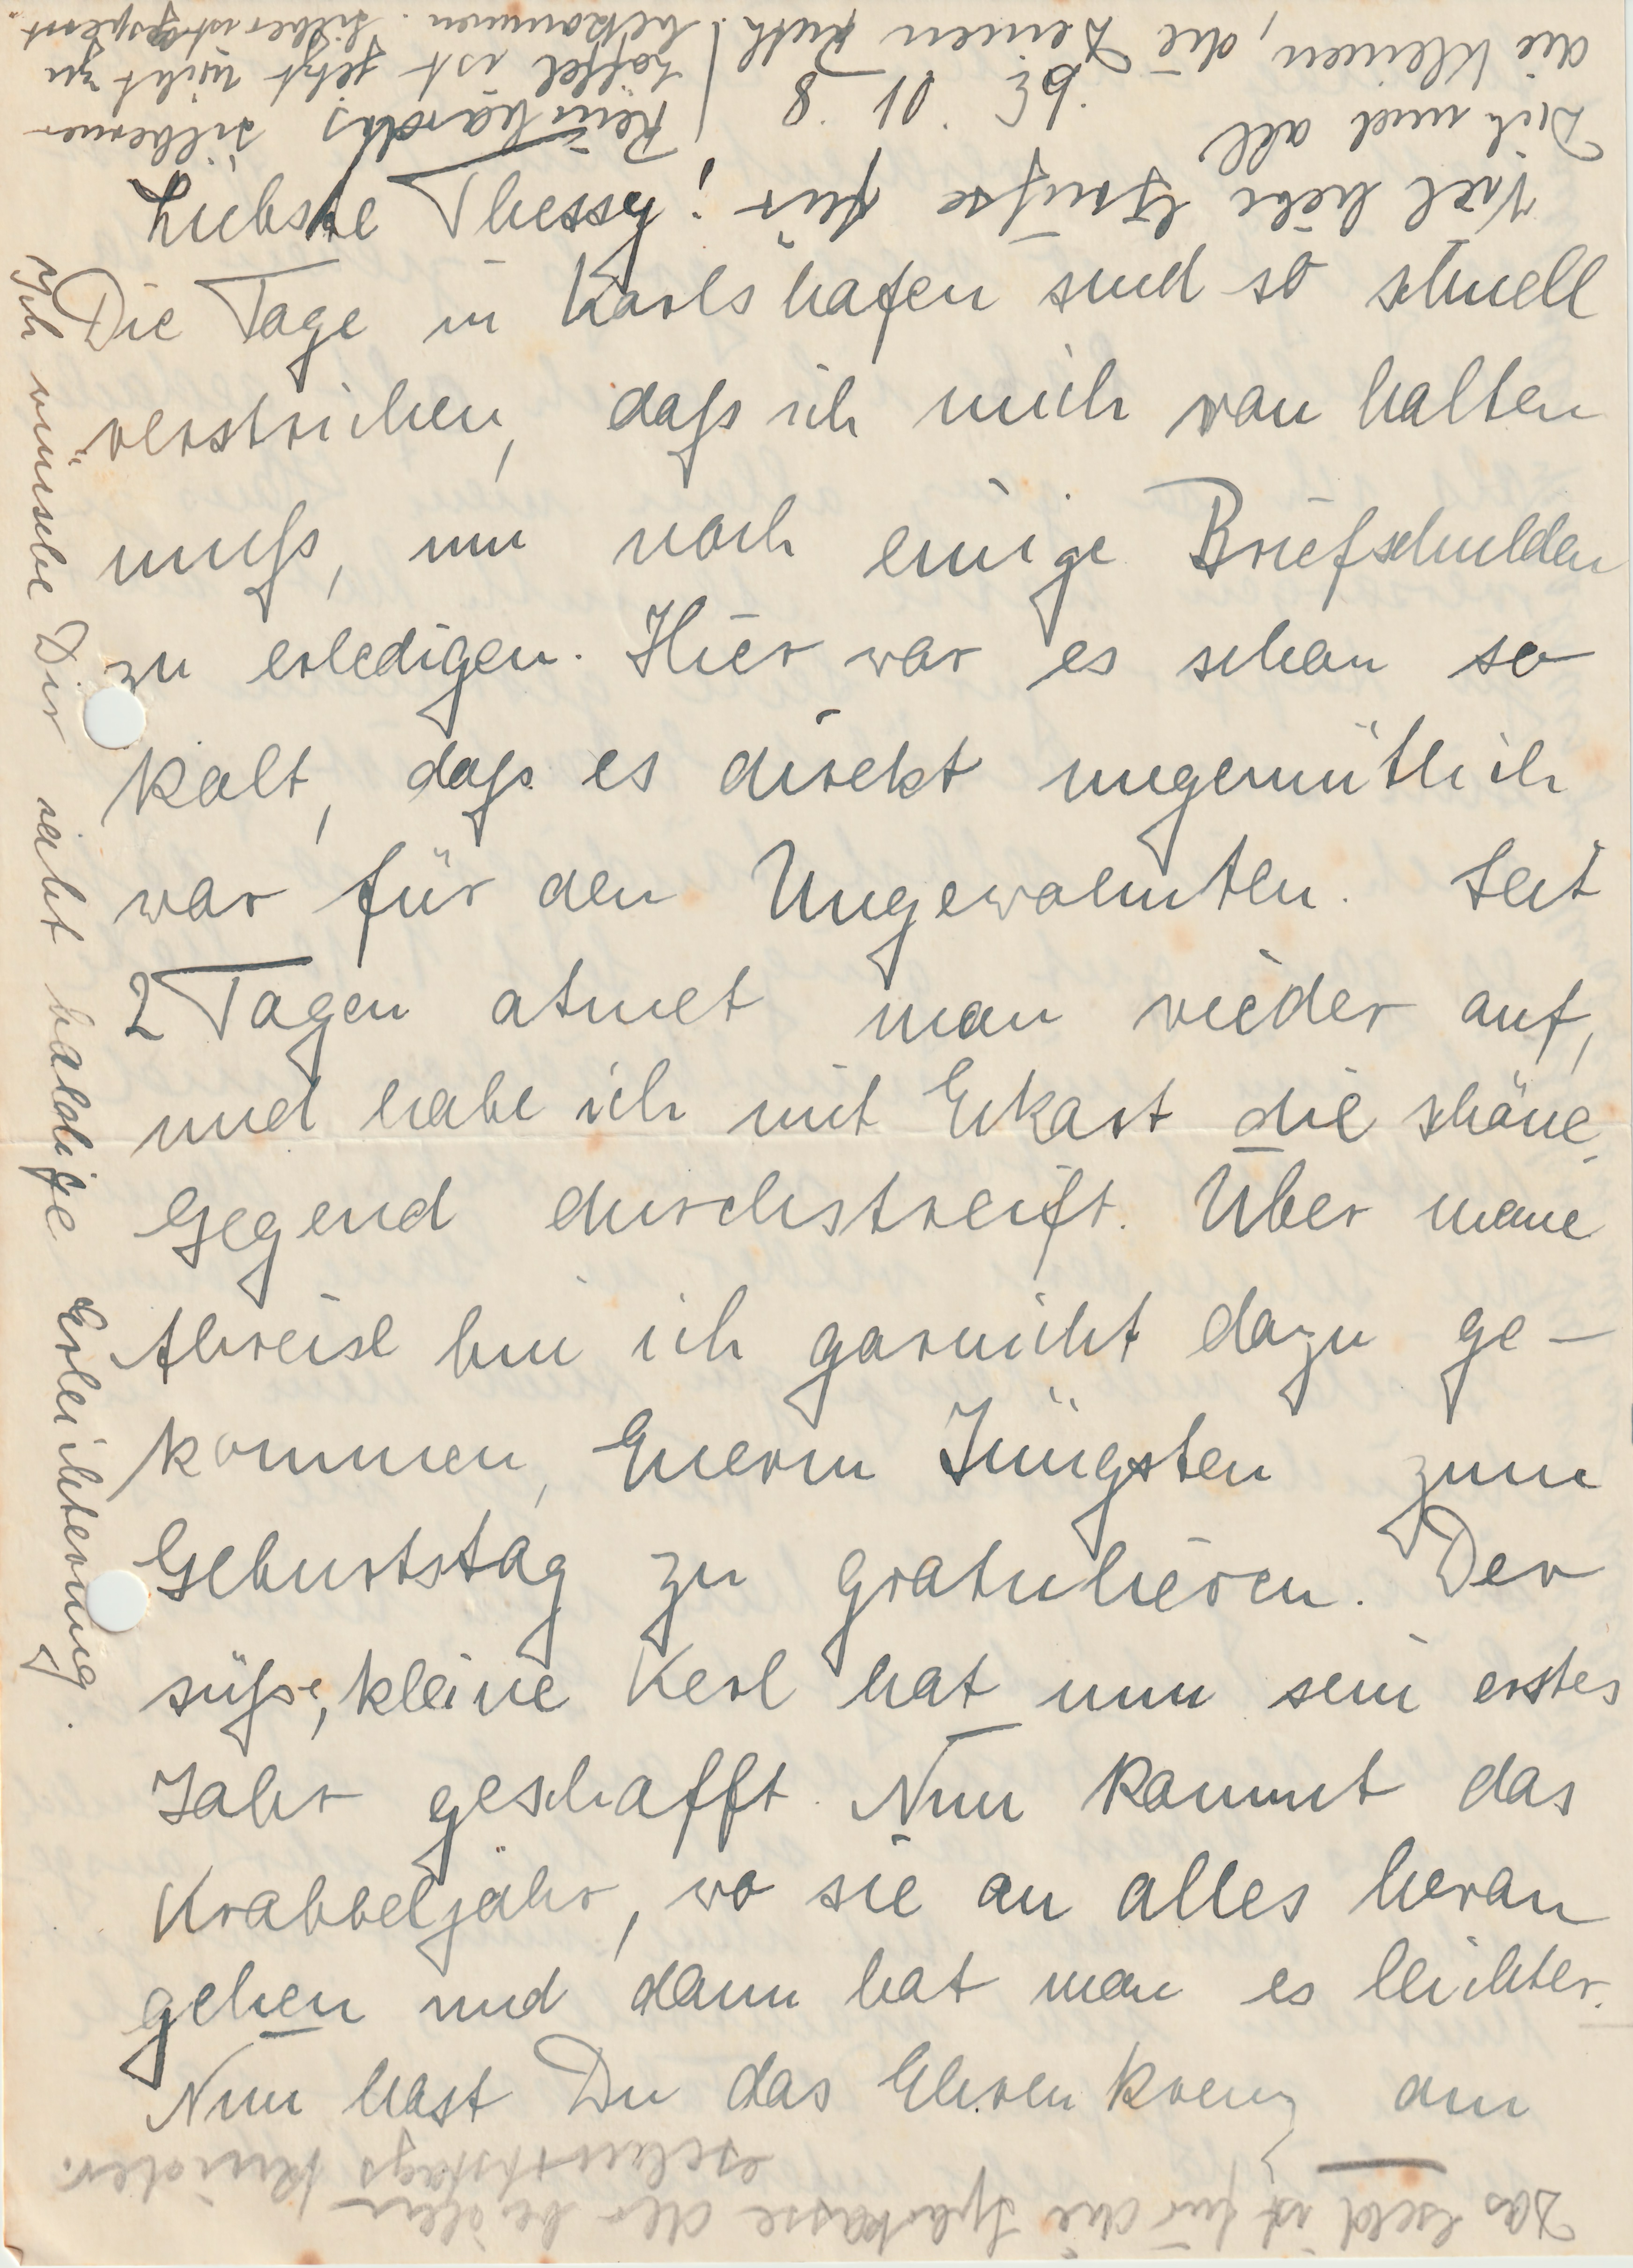 8. 11. 39.
Liebste Thessy!
Die Tage in Karlshafen sind so schnell
verstrichen, daſs ich mich ran halten
muſs, um noch einige Briefschulden
zu erledigen. Hier war es schon so
kalt, daſs es direkt ungemütlich
war für den Ungewohnten. Seit
2 Tagen atmet man wieder auf,
und habe ich mit Ekart die schöne
Gegend durchstreift. Über meine
Abreise bin ich garnicht dazu ge-
kommen, Euerm Jüngsten zum
Geburtstag zu gratulieren. Der
süſse, kleine Kerl hat nun sein erstes
Jahr geschafft. Nun kommt das
Krabbeljahr, wo sie an alles heran
gehen und dann hat man es leichter.
Nun hast Du das Ehrenkreuz am
Ich wünsche Dir recht baldige Erleichterung.
Viel liebe Grüſse für
Dich und all
die kleinen, die Deinen Ruth!
Reinhards silberner
Löffel ist jetzt nicht zu
bekommen. Silber ist gesperrt
Das Geld ist für die Sparkasse der beiden
Geburtstags Kinder.